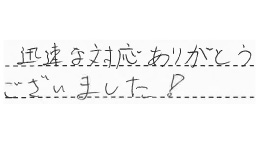 迅速な対応ありがとう
ございました！